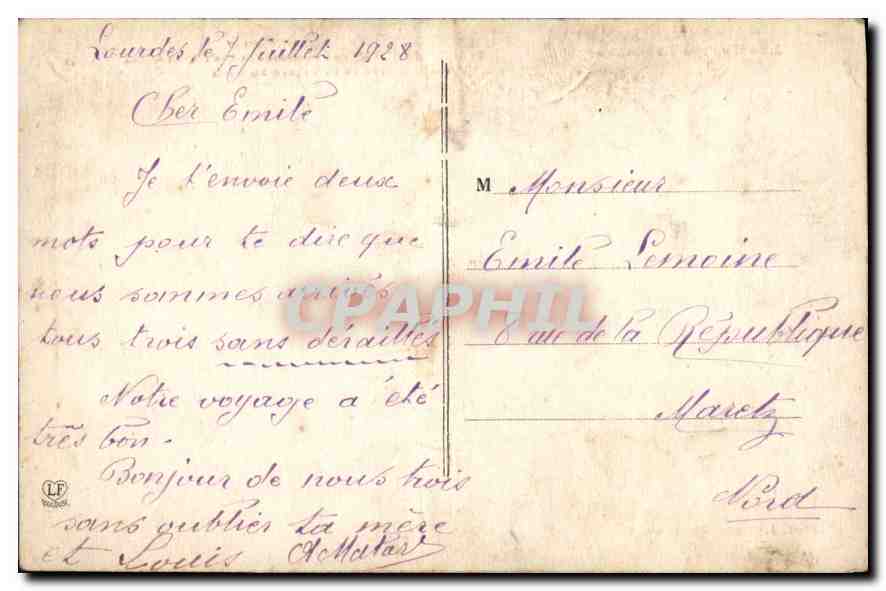 Lourdes le 7 Juillet 1928
Cher Emile
Je t'envoie deux
mots pour te dire que
nous sommes arrivés
tous trois sans déraillés
Notre voyage a été
très bon.
Bonjour de nous trois
sans oublier ta mère
et Louis
M Monsieur
Emile Lemoine
8 rue de la République
Maretz
Nord
LF
CPAPHIL